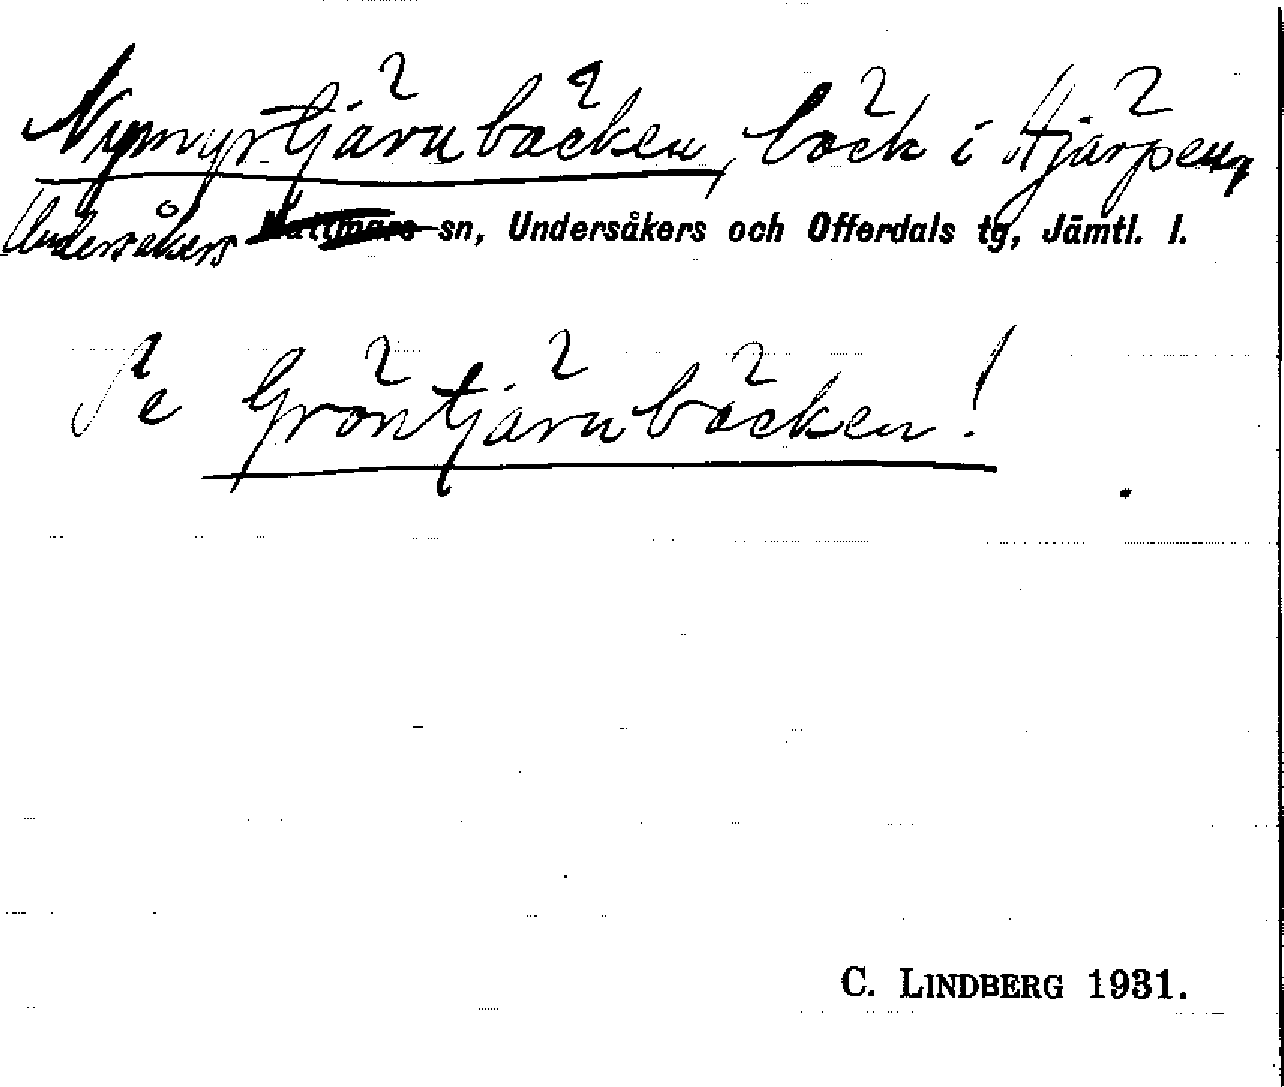 Nymyrtjärnbäcken, bäck i Hjärpen,
Undersåkers Mattmars sn, Undersåkers och Offerdals tg, Jämtl. l.
Se Gröntjärnbäcken!
C. LINDBERG 1931.